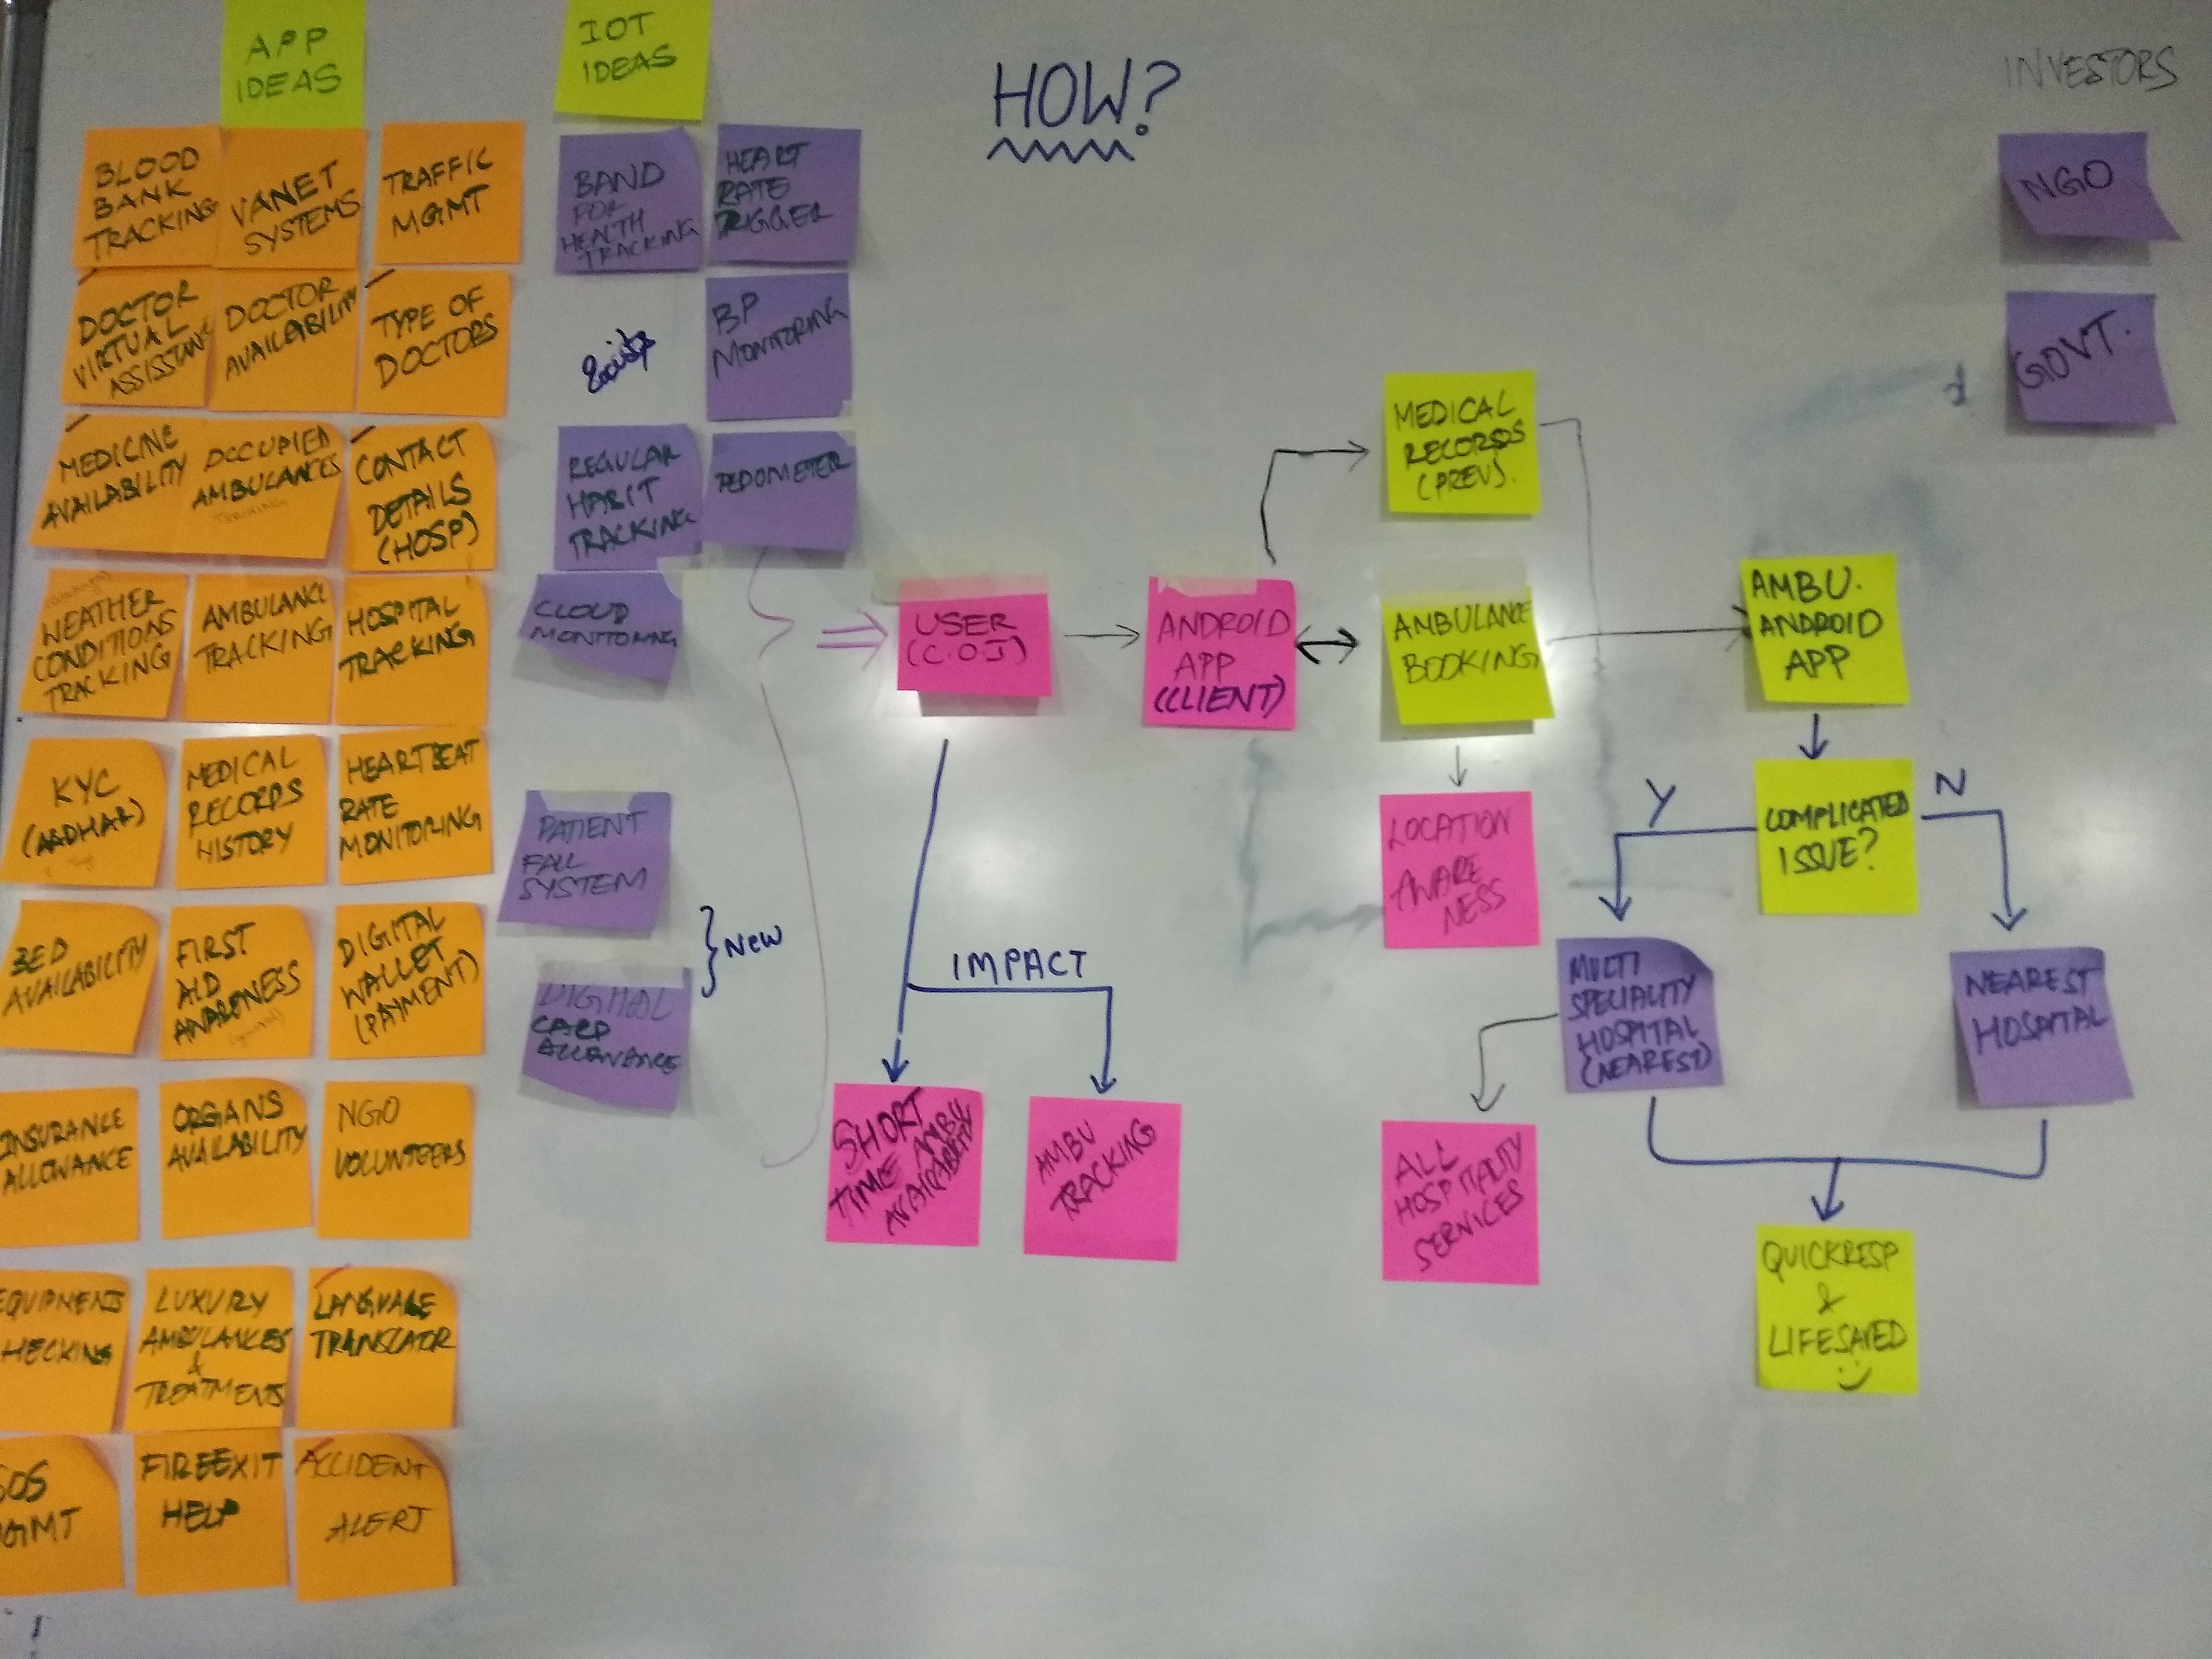 APP
IDEAS
IOT
IDEAS
HOW?
INVESTORS
BLOOD
BANK
TRACKING
VANET
SYSTEMS
TRAFFIC
MGMT
DOCTOR
VIRTUAL
DOCTOR
AVAILABILITY
TYPE OF
DOCTORS
MEDICINE
AVAILABILITY
OCCUPIED
AMBULANCES
TRACKING
CONTACT
DETAILS
(HOSP)
WEATHER
CONDITIONS
TRACKING
AMBULANCE
TRACKING
HOSPITAL
TRACKING
KYC
(AADHAR)
MEDICAL
RECORDS
HISTORY
HEARTBEAT
RATE
MONITORING
BED
AVAILABILITY
FIRST
AID
DIGITAL
WALLET
(PAYMENT)
INSURANCE
ALLOWANCE
ORGANS
AVAILABILITY
NGO
VOLUNTEERS
HECKING
LUXURY
AMBULANCES
&
TREATMENTS
LANGUAGE
TRANSLATOR
SOS
GMT
FIREEXIT
HELP
ACCIDENT
ALERT
BAND
FOR
HEALTH
TRACKING
HEART
RATE
TRIGGER
BP
MONITORING
REGULAR
HABIT
TRACKING
PEDOMETER
CLOUD
MONITORING
PATIENT
FALL
SYSTEM
DIGITAL
CARD
New
USER
(C.O.I)
ANDROID
APP
(CLIENT)
MEDICAL
RECORDS
(PREV).
AMBULANCE
BOOKING
LOCATION
AWARE
NESS
AMBU.
ANDROID
APP
COMPLICATED
ISSUE?
Y
N
MULTI
SPECIALITY
HOSPITAL
(NEAREST)
NEAREST
HOSPITAL
IMPACT
SHORT
TIME AMBU
AVAILABILITY
AMBU
TRACKING
ALL
HOSPITALITY
SERVICES
QUICKRESP
&
LIFESAVED
NGO
GOVT.